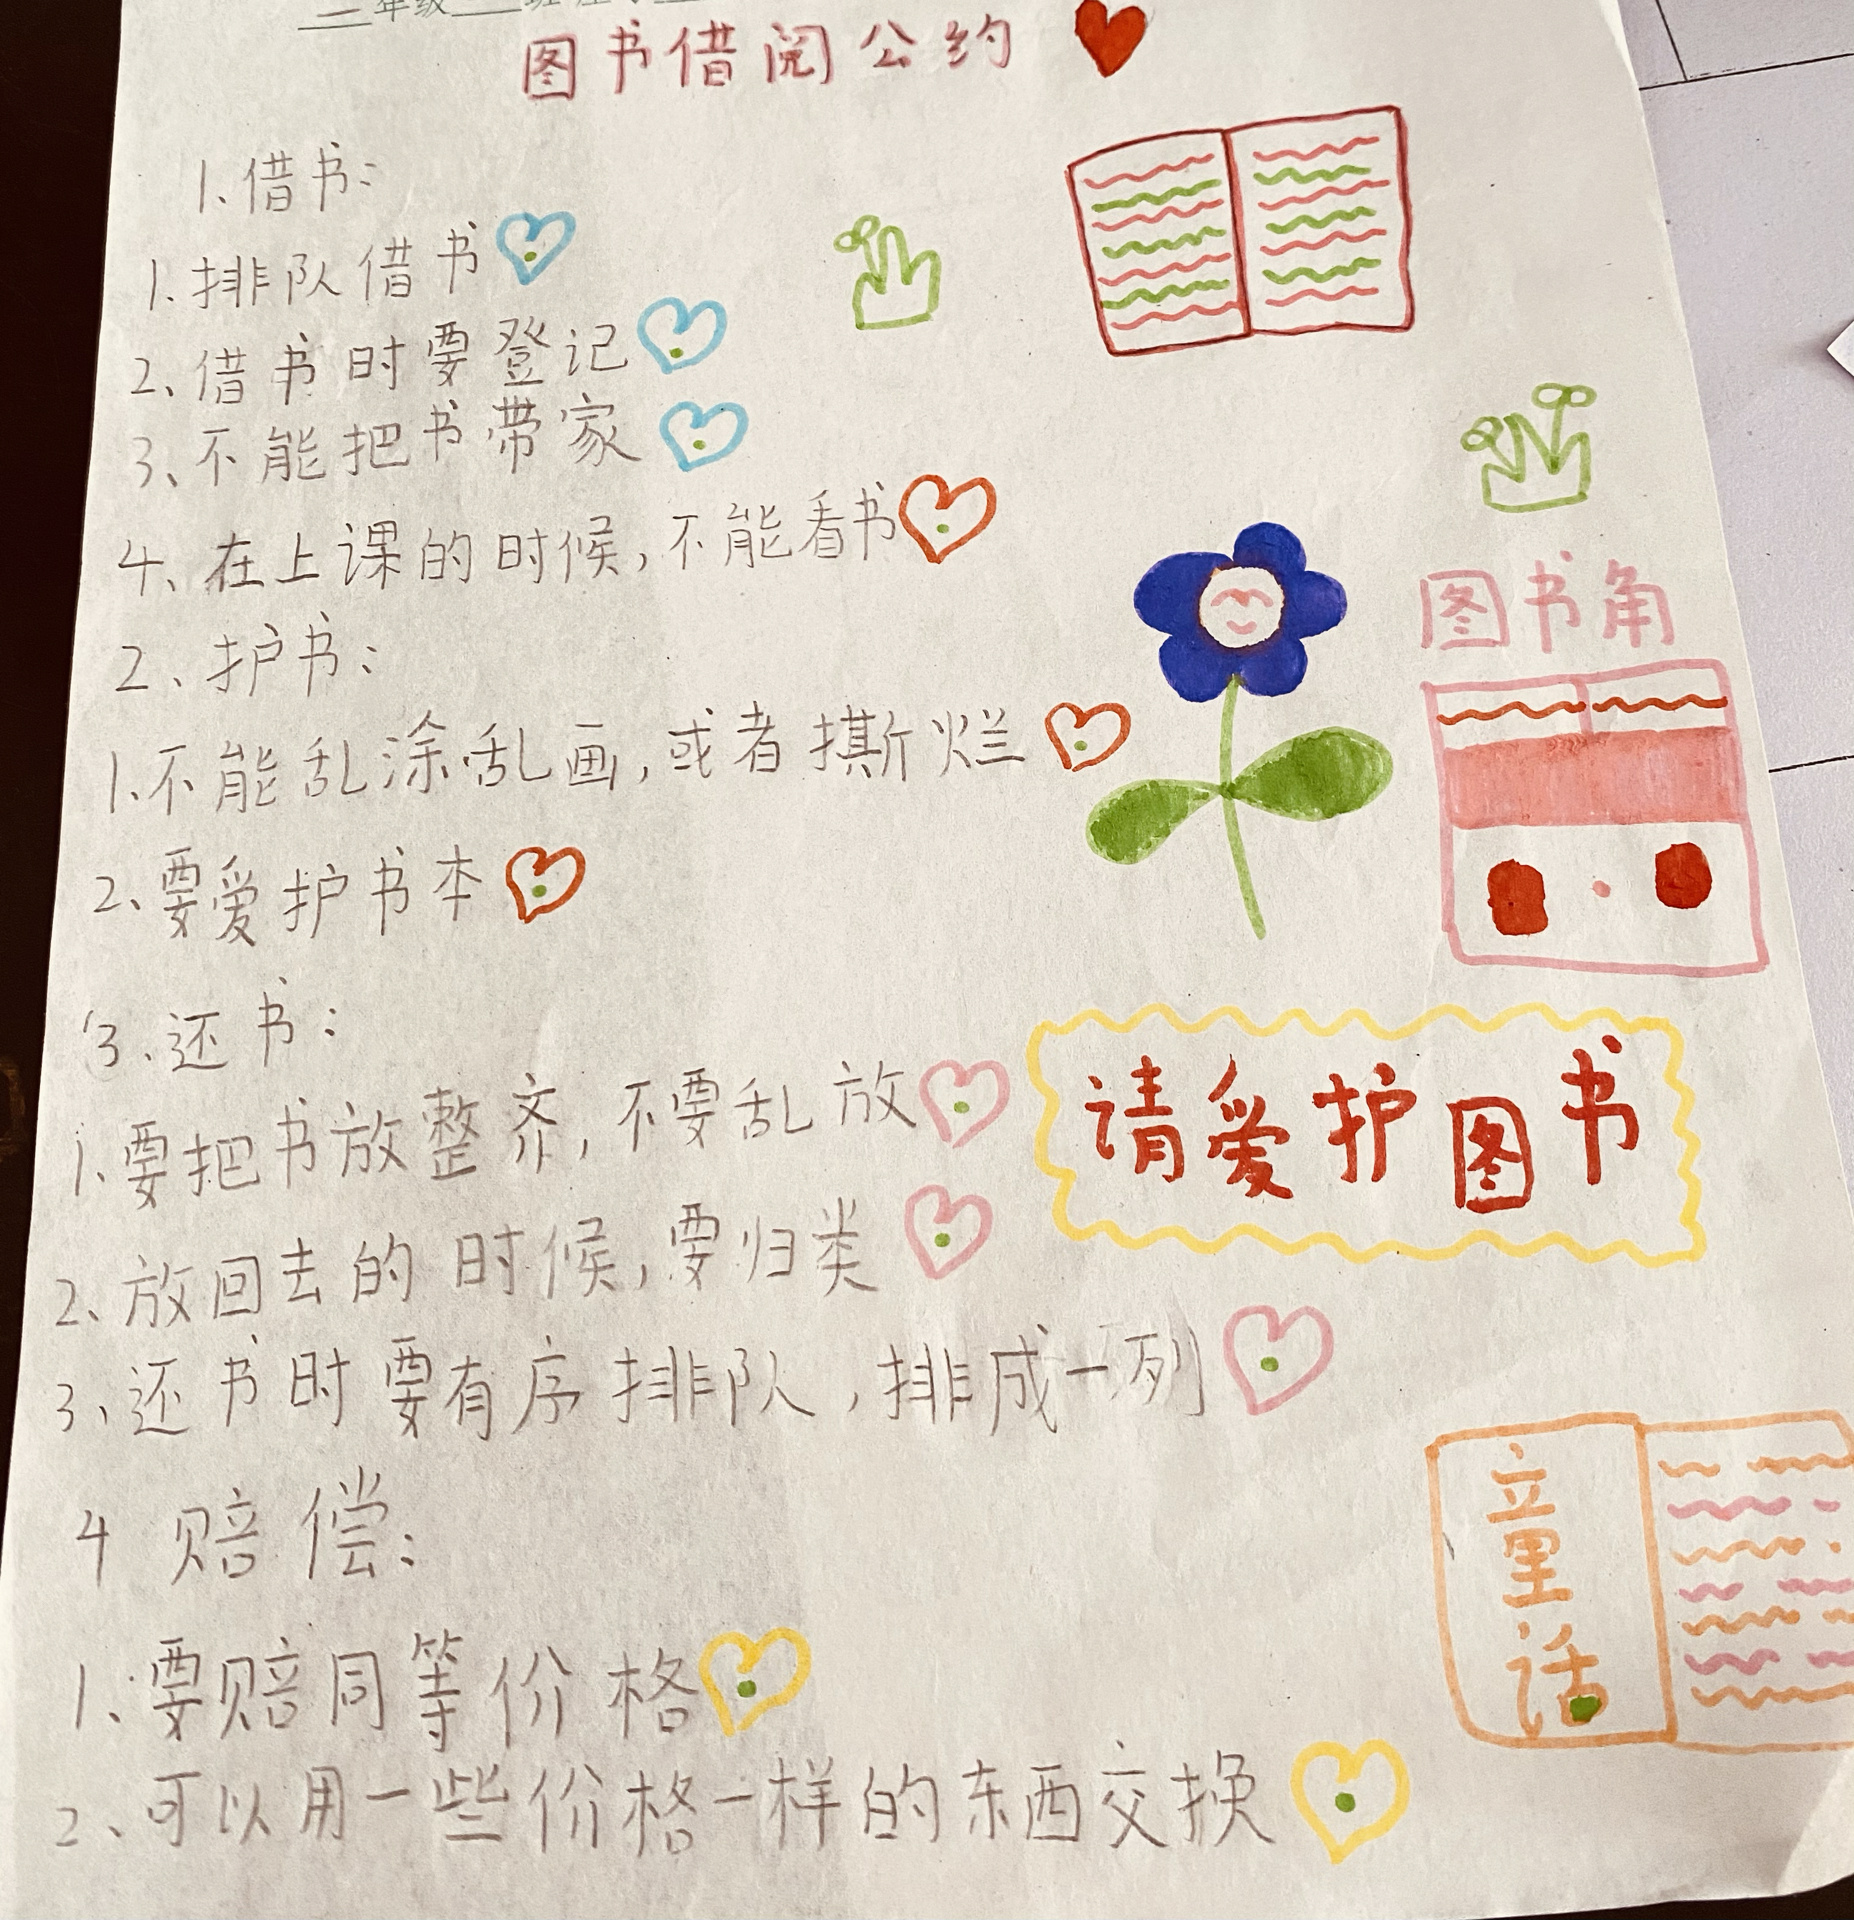 二年级
图书借阅公约
1.借书:
1.排队借书
2、借书时要登记
3、不能把书带家
4、在上课的时候,不能看书
2、护书:
1.不能乱涂乱画,或者撕烂
2、要爱护书本
3.还书:
1.要把书放整齐,不要乱放
2、放回去的时候,要归类
3、还书时要有序排队,排成一列
4 赔偿:
1、要赔同等价格
2、可以用一些价格一样的东西交换
图书角
请爱护图书
童话